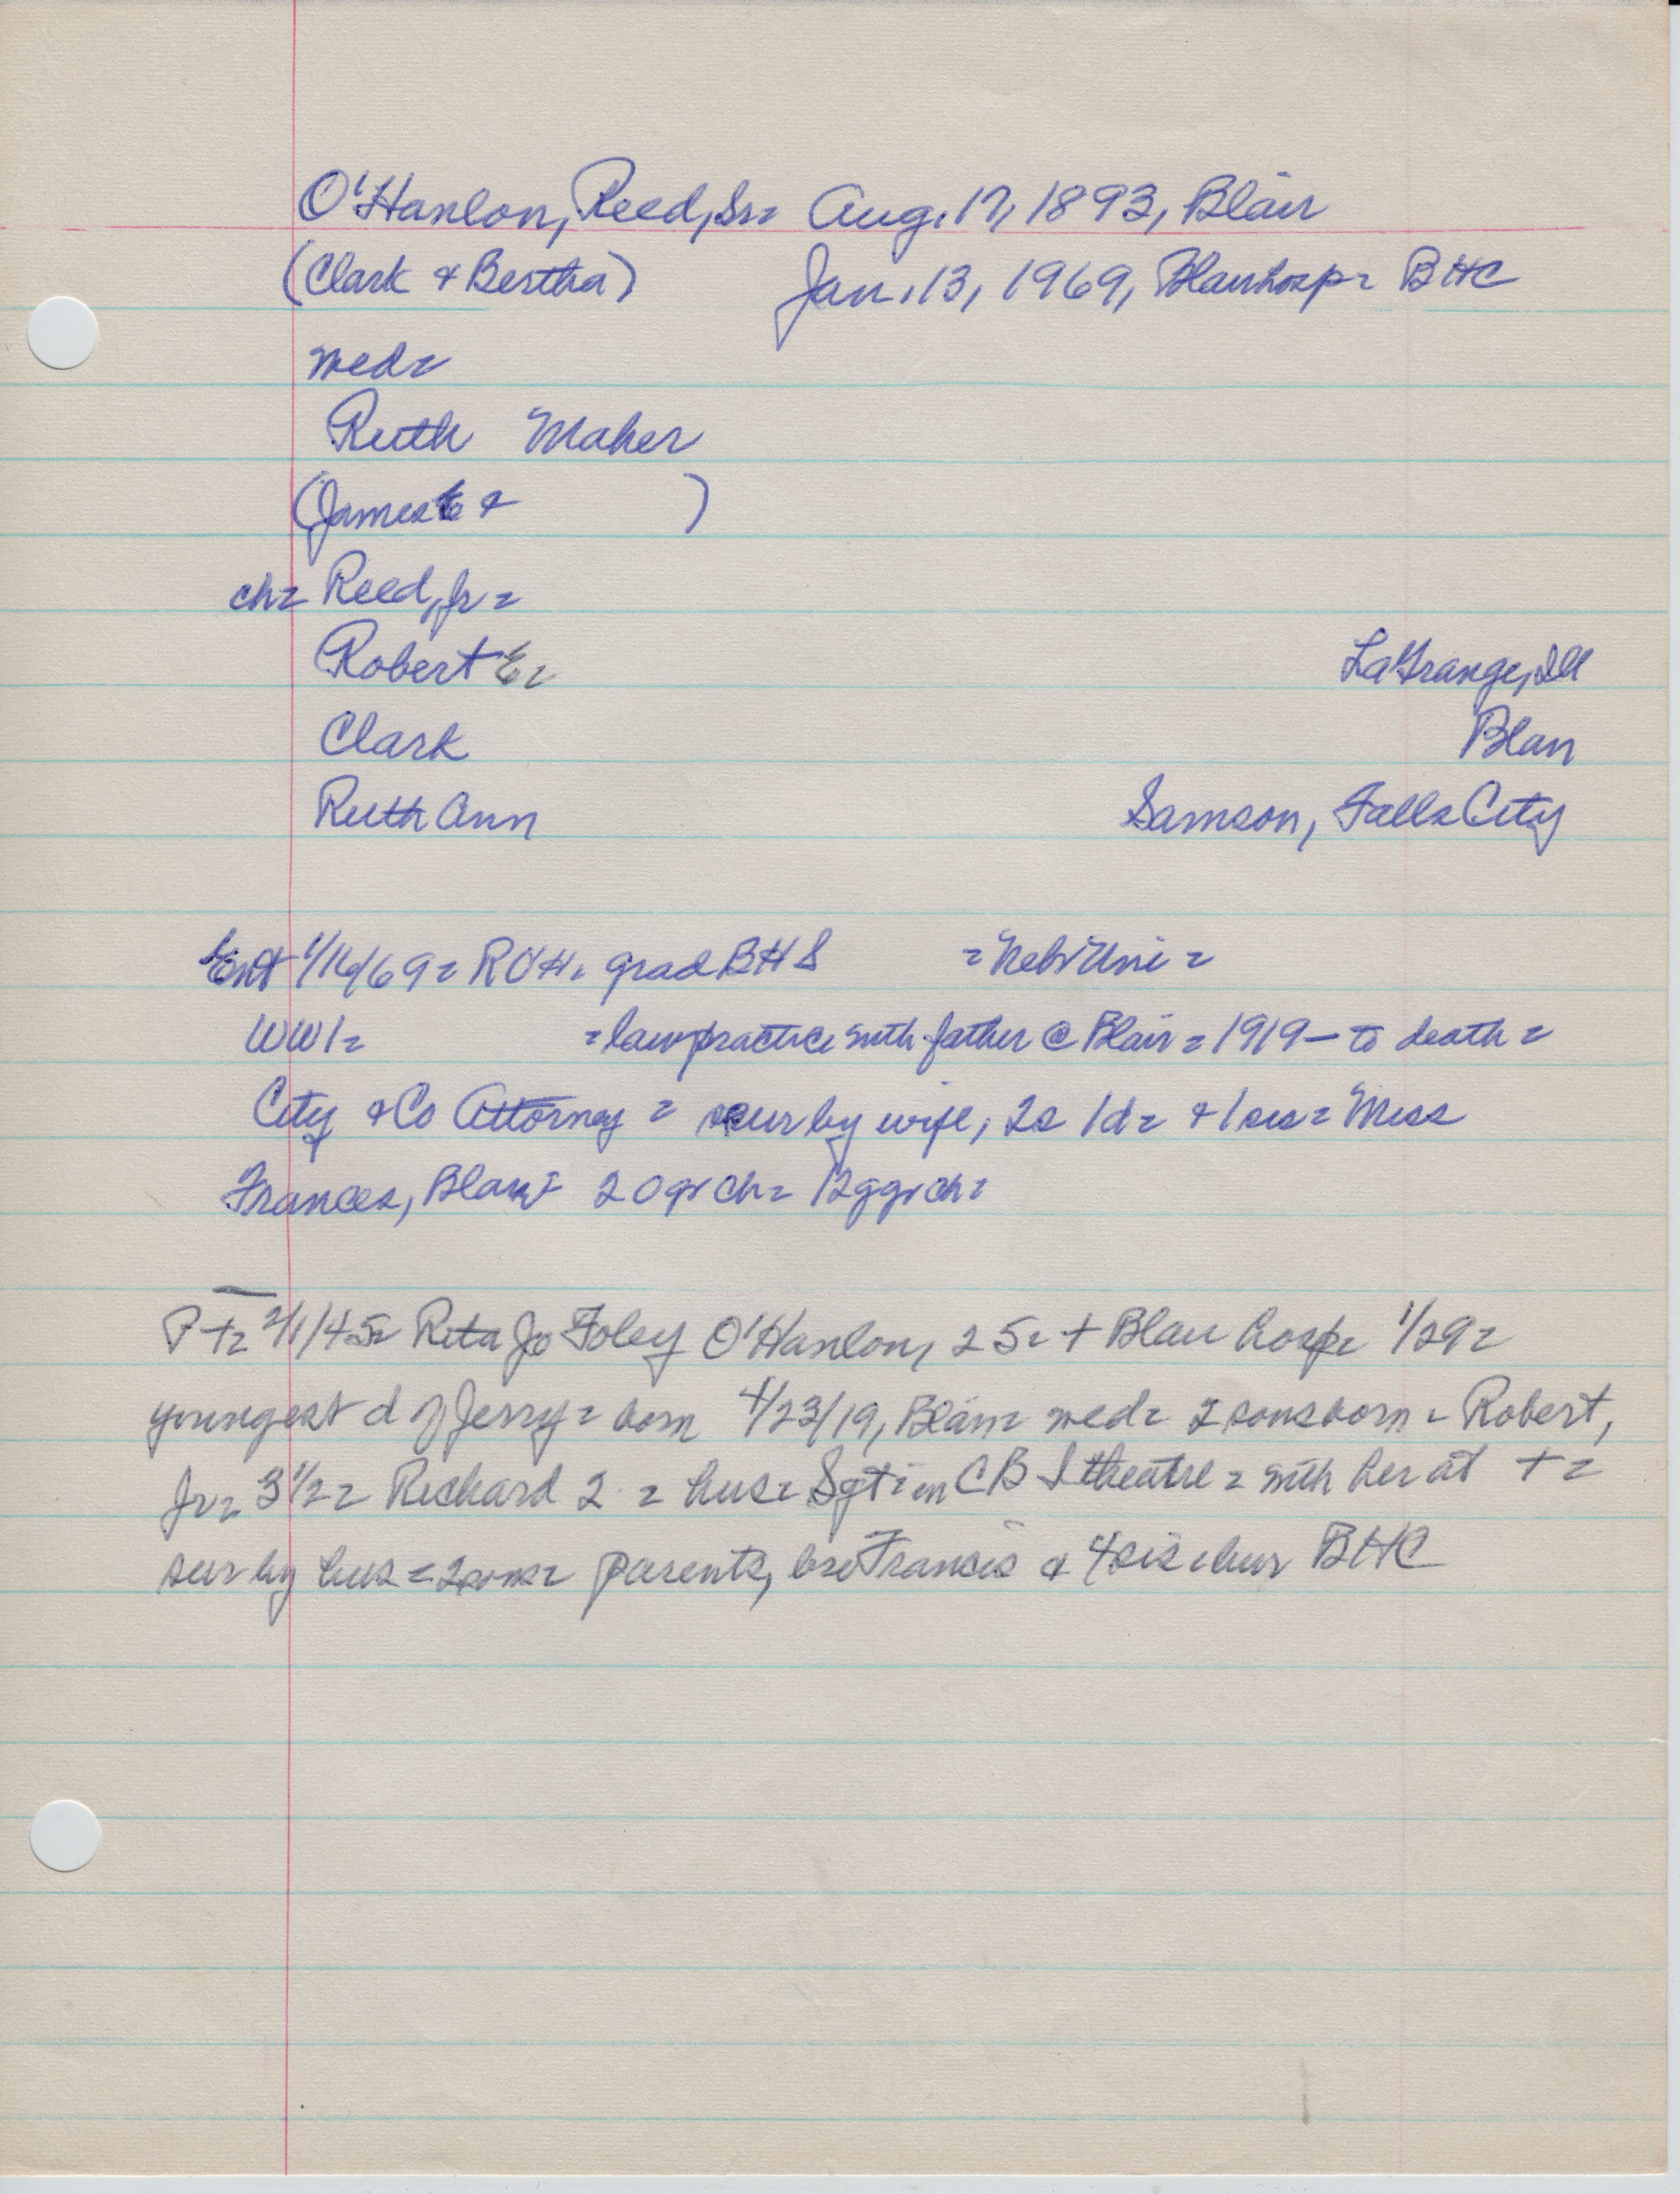 O'Hanlon, Reed, Sr= Aug. 17, 1893, Blair
(Clark & Bertha) Jan. 13, 1969, Blair hosp= BHC
med=
Ruth Maher
(James E & )
ch= Reed, Jr=
Robert E= LaGrange, Ill
Clark Blair
Ruth Ann Samson, Falls City
Ent 1/16/69= R O'H. grad BHS =Nebr Uni=
WW1= =law practice with father @ Blair = 1919 - to death =
City & Co Attorney = sur by wife, 2s 1d= & 1 sis= Miss
Frances, Blair= 20 gr ch= 12 ggr ch=
PT= 2/1/45= Rita Jo Foley O'Hanlon, 25= + Blair hosp= 1/29=
youngest d of Jerry= born 4/23/19, Blair= med= 2 sons born - Robert,
Jr= 3 1/2= Richard 2 = hus= Sgt in CBI theatre = with her at + =
sur by hus = 2 sons= parents, bro Francis & 4 sis = bur BHC